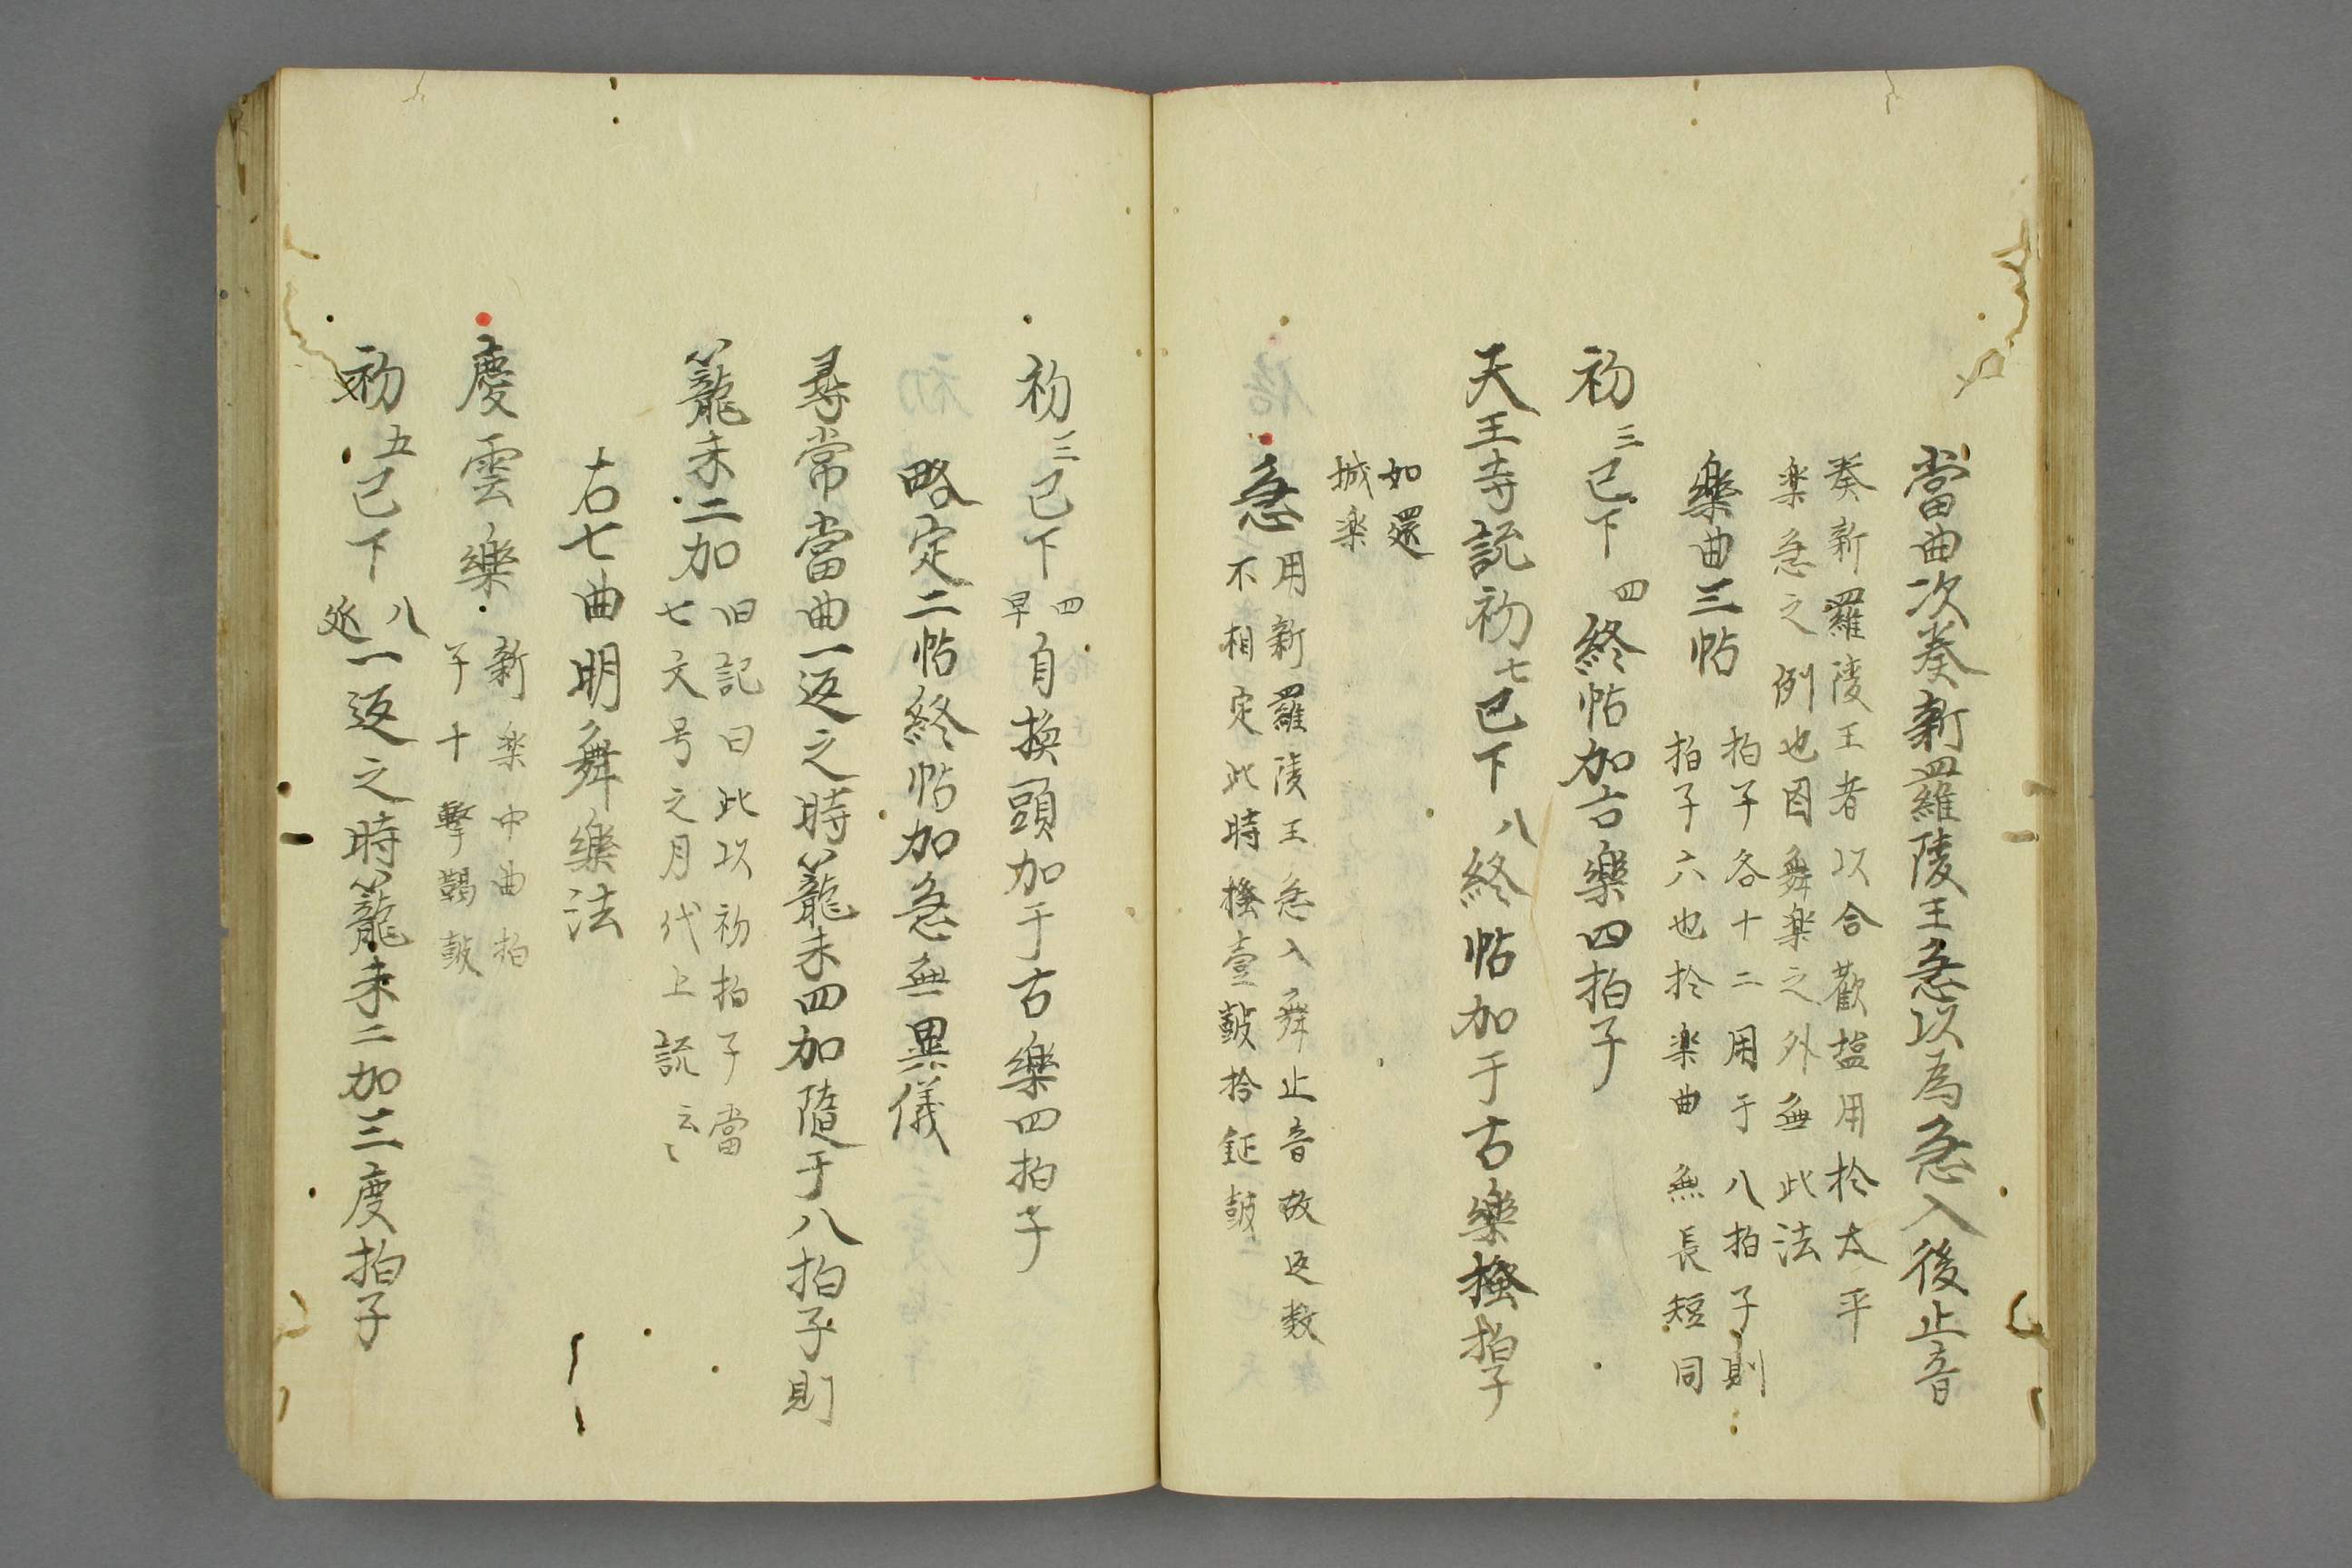 當曲次奏新羅陵王急以為急入後止音
奏新羅陵王者以合歡塩用於太平
楽急之例也因舞楽之外無此法
樂曲三帖
拍子各十二用于八拍子則
拍子六也於楽曲無長短同
初三已下四終帖加古樂四拍子
天王寺説初七已下八終帖加于古樂搔拍子
如還
城楽
急
用新羅陵王急入舞止音故返数
不相定此時搔壹鼓拾鉦鼓
初三已下四
早
自換頭加于古樂四拍子
略定二帖終帖加急無異儀
尋常當曲一返之時籠未四加隨于八拍子則
籠未二加
旧記曰此以初拍子當
七文号之月代上説云〻
右七曲明舞樂法
慶雲樂
新楽中曲拍
子十擊鞨鼓
初五已下八
延
一返之時籠未二加三度拍子